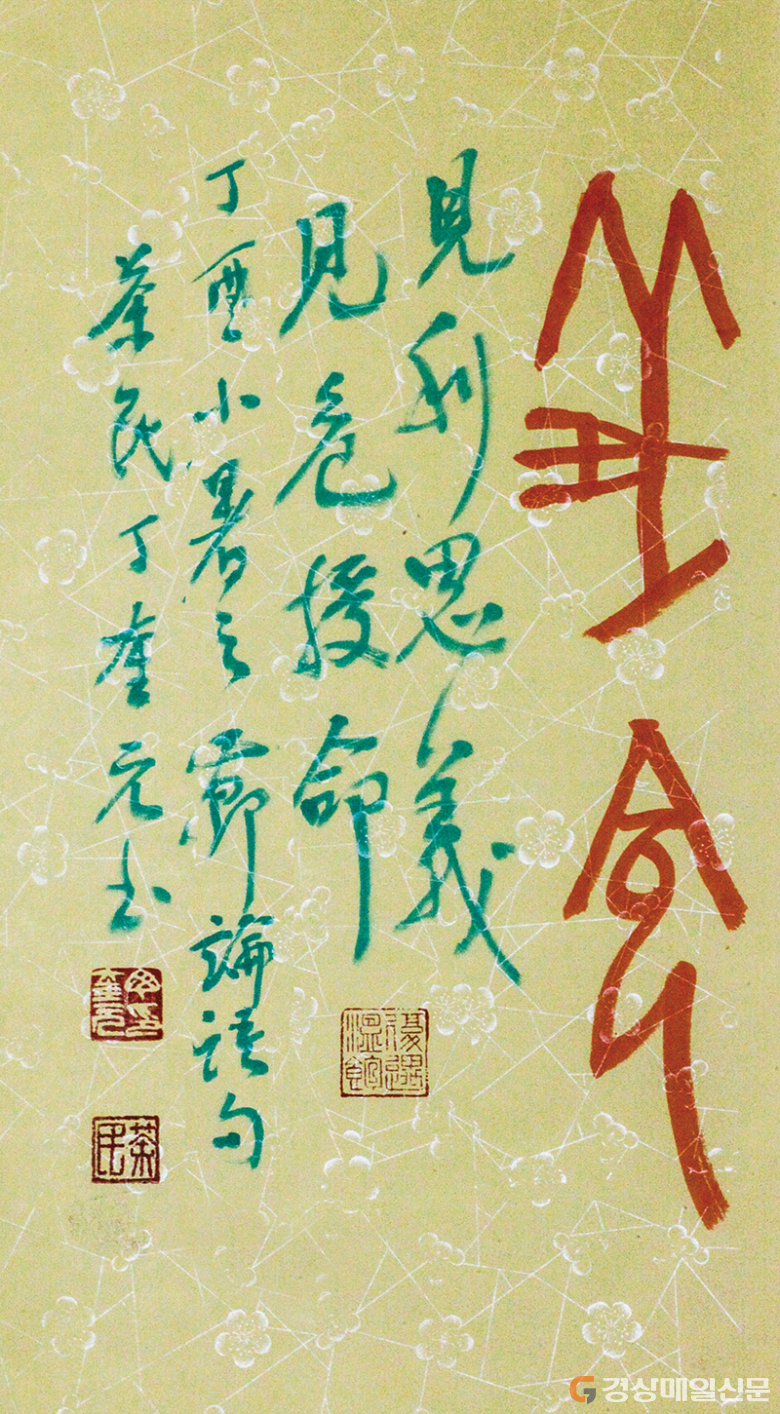 義命
見利思義
見危授命
丁酉小暑之節論語句
茶民丁奎元书
茶民
경상매일신문